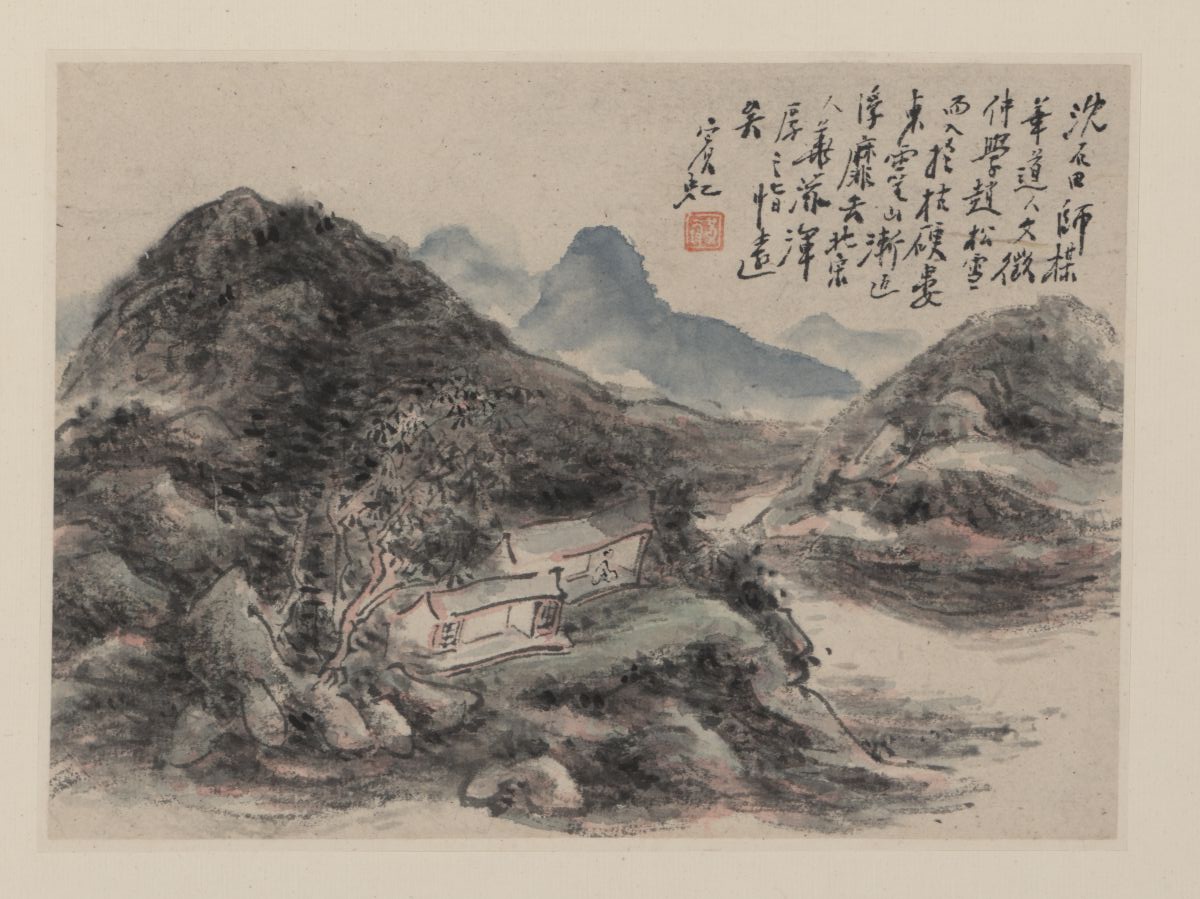 沈石田師楳
華道人文徵
仲學趙松雪
而入於枯硬婁
東雲山漸近
浮靡去北宋
人華滋渾
厚之恉遠
矣
賓虹